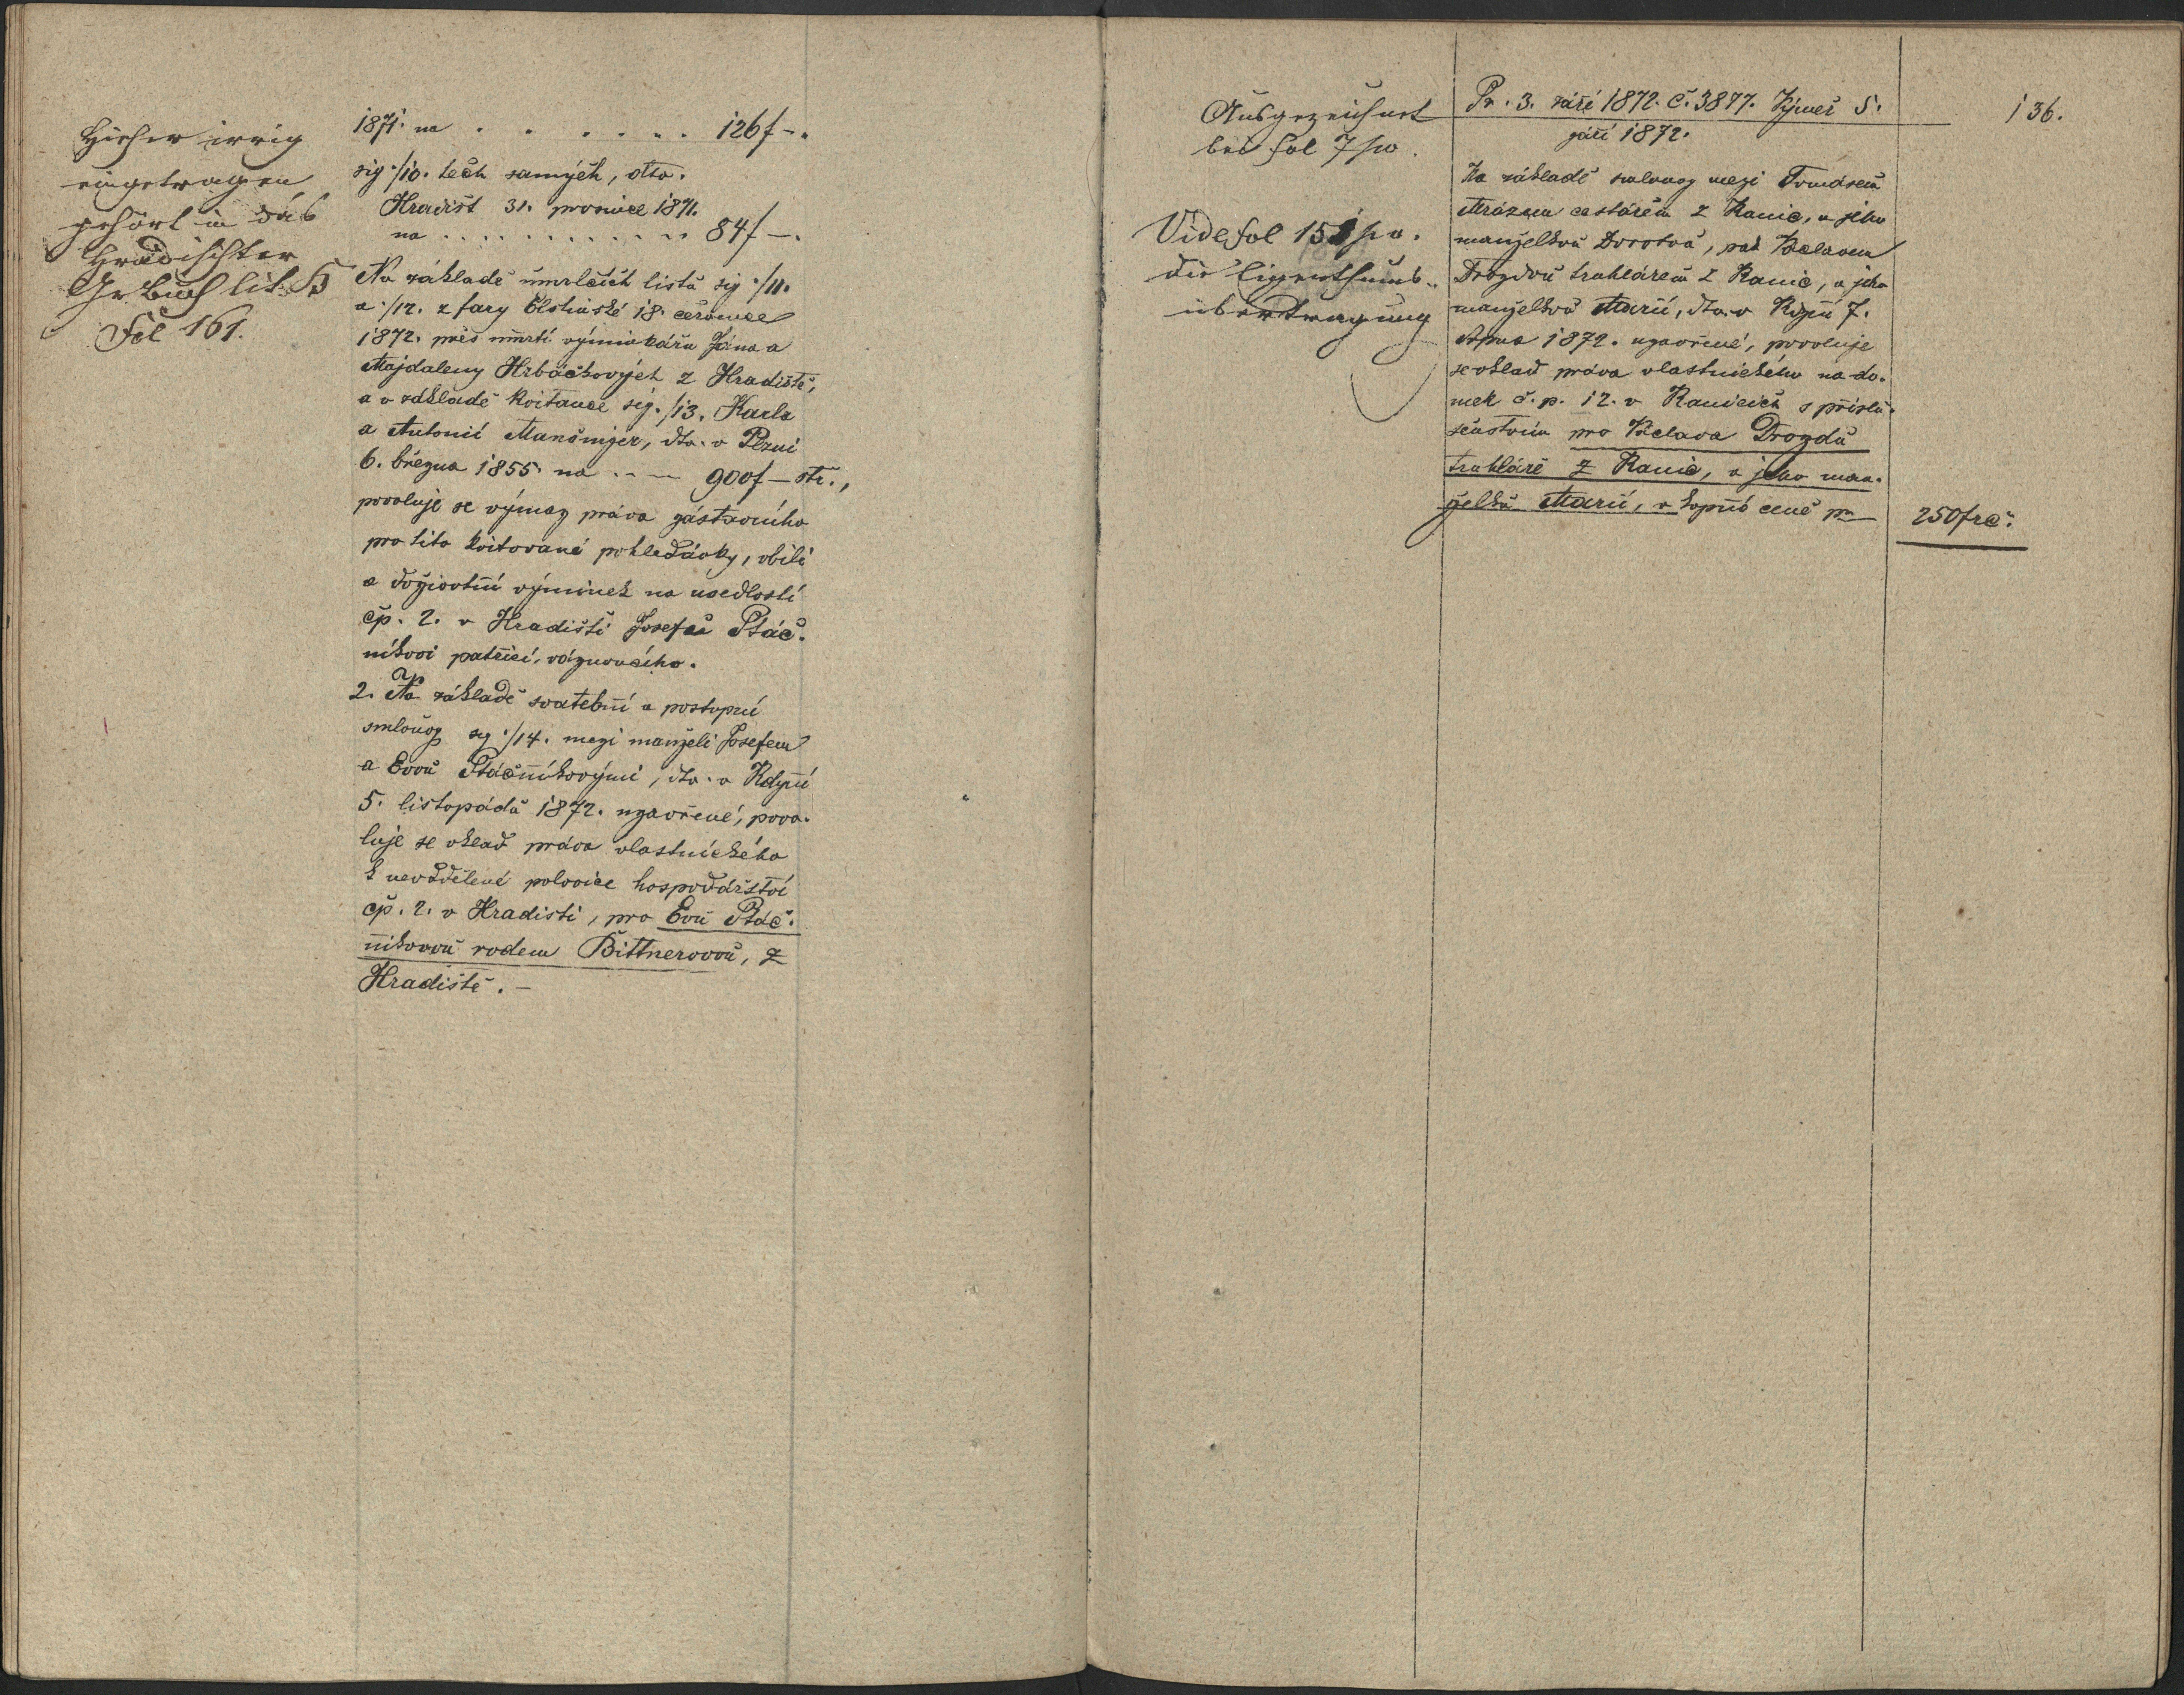 Hieher irrig
eingetragen
gehört in das
Hradischter
Gr buch lit. H
Fol 161.
1871. na . . . . . . . 126f –.
sig ·/10. těch samých, dto.
Hradišt 31. prosince 1871.
na . . . . . . . . . . . 84f –.
Na základě úmrlčích listů sig ·/11.
a ·/12. z fary Elstinské 18. července
1872. přes úmrtí výminkářů Jána a
Majdaleny Hrbáčkových z Hradiště,
a v základě kvitance sig. ·/13. Karla
a Antonií Manšinger, dto. v Plzni
6. března 1855. na . . — 900f – stř.,
povoluje se výmaz práva zástavního
pro tito kvitované pohledávky, obilí
a doživotní výminek na usedlosti
čp. 2. v Hradišti Josefu Ptáč-
níkovi patřící, váznoucího.
2. Na základě svatební a postupní
smlouvy sig ·/14. mezi manželi Josefem
a Evou Ptáčníkovými, dto. v Kdyni
5. listopadu 1872. uzavřené, povo-
luje se vklad práva vlastnického
k nevddělené polovice hospodářství
čp. 2. v Hradisti, pro Evu Ptáč-
níkovou rodem Bittnerovou, z
Hradiště. –
Ausgezeichnet
bei fol 7 pv.
Vide fol 151 pv.
die Eigenthums-
übertragung
Pr. 3. září 1872. č. 3877. Výměř 5.
září 1872.
136.
Na základě smlouvy mezi Tomášem
Mrázem cestářem z Kanic, a jeho
manželkou Dorotou, pak Václavem
Drozdou truhlářem z Kanic, a jeho
manželkou Marií, dto. v Kdyni 7.
1872. uzavřené, povoluje
se vklad práva vlastnického na do-
mek č. p. 12. v Kanicích s příslu-
šenstvím pro Václava Drozdu
truhláře z Kanic, a jeho man-
želku Marii, v kupní ceně pr
250f rč.